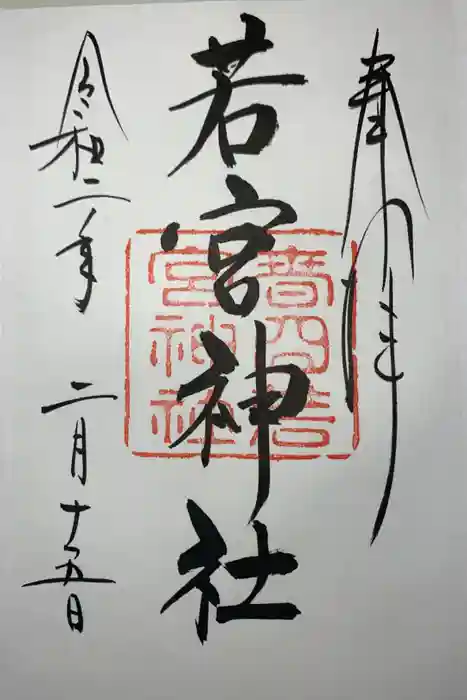 奉拝
若宮神社
音羽若宮神社
令和二年
二月十五日